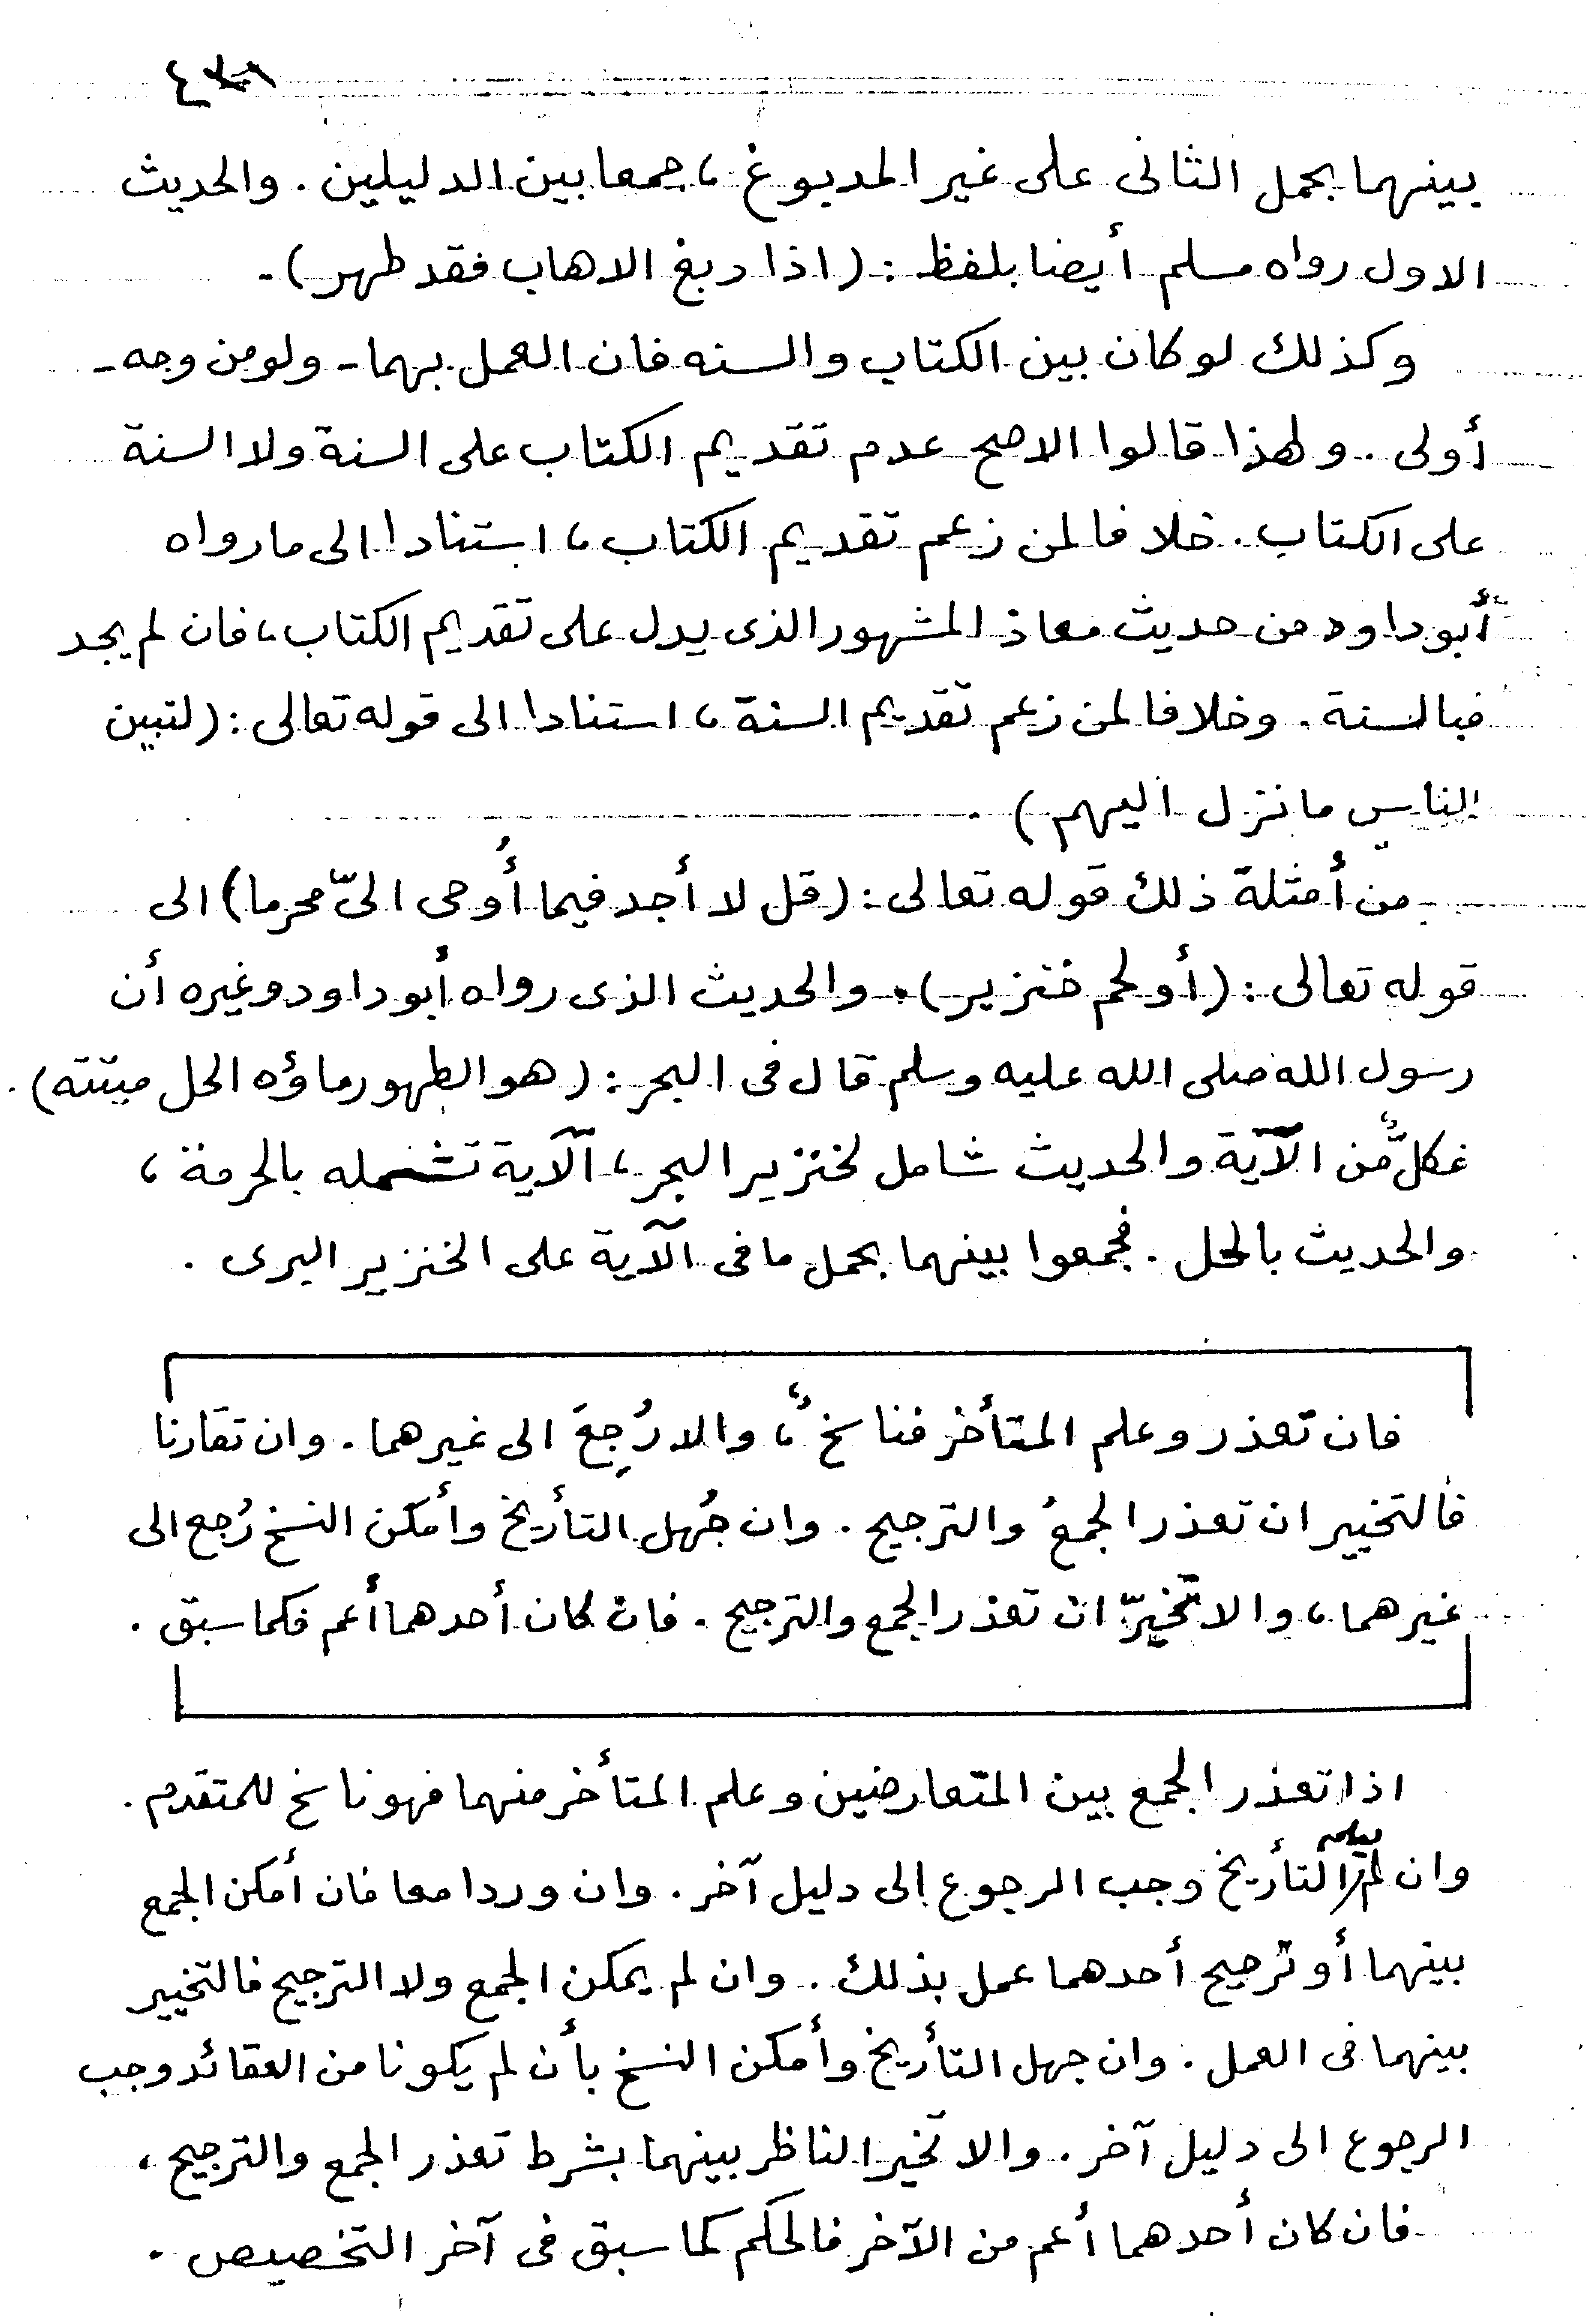 بينهما بحمل الثانى على غير المدبوغ ، جمعا بين الدليلين . والحديث
الاول رواه مسلم أيضا بلفظ : ( اذا دبغ الاهاب فقد طهر ) .
وكذلك لو كان بين الكتاب والسنه فان العمل بهما - ولو من وجه -
أولى . ولهذا قالوا الاصح عدم تقديم الكتاب على السنة ولا السنة
على الكتاب . خلافا لمن زعم تقديم الكتاب ، استنادا الى ما رواه
أبو داود من حديث معاذ المشهور الذى يدل على تقديم الكتاب ، فان لم يجد
فبالسنة . وخلافا لمن زعم تقديم السنة ، استنادا الى قوله تعالى : ( لتبين
للناس ما نزل اليهم ) .
من أمثلة ذلك قوله تعالى : ( قل لا أجد فيما أُوحى الىّ محرما ) الى
قوله تعالى : ( أو لحم خنزير ) . والحديث الذى رواه أبو داود وغيره أن
رسول الله صلى الله عليه وسلم قال فى البحر : ( هو الطهور ماؤه الحل ميتته ) .
فكلٌّ من الآية والحديث شامل لخنزير البحر ، الآية تشمله بالحرمة ،
والحديث بالحل . فجمعوا بينهما بحمل ما فى الآية على الخنزير البرى .
فان تعذر وعلم المتأخر فناسخٌ ، والا رُجِعَ الى غيرهما . وان تقارنا
فالتخيير ان تعذر الجمعُ والترجيح . وان جُهل التأريخ وأمكن النسخ رُجع الى
غيرهما ، والا تخيّر ان تعذر الجمع والترجيح . فان كان أحدهما أعم فكما سبق .
اذا تعذر الجمع بين المتعارضين وعلم المتأخر منهما فهو ناسخ للمتقدم .
وان لم يعلم التأريخ وجب الرجوع إلى دليل آخر . وان وردا معا فان أمكن الجمع
بينهما أو ترجيح أحدهما عمل بذلك . وان لم يمكن الجمع ولا الترجيح فالتخيير
بينهما فى العمل . وان جهل التأريخ وأمكن النسخ بأن لم يكونا من العقائد وجب
الرجوع الى دليل آخر . والا تخير الناظر بينهما بشرط تعذر الجمع والترجيح ،
فان كان أحدهما أعم من الآخر فالحكم كما سبق فى آخر التخصيص .